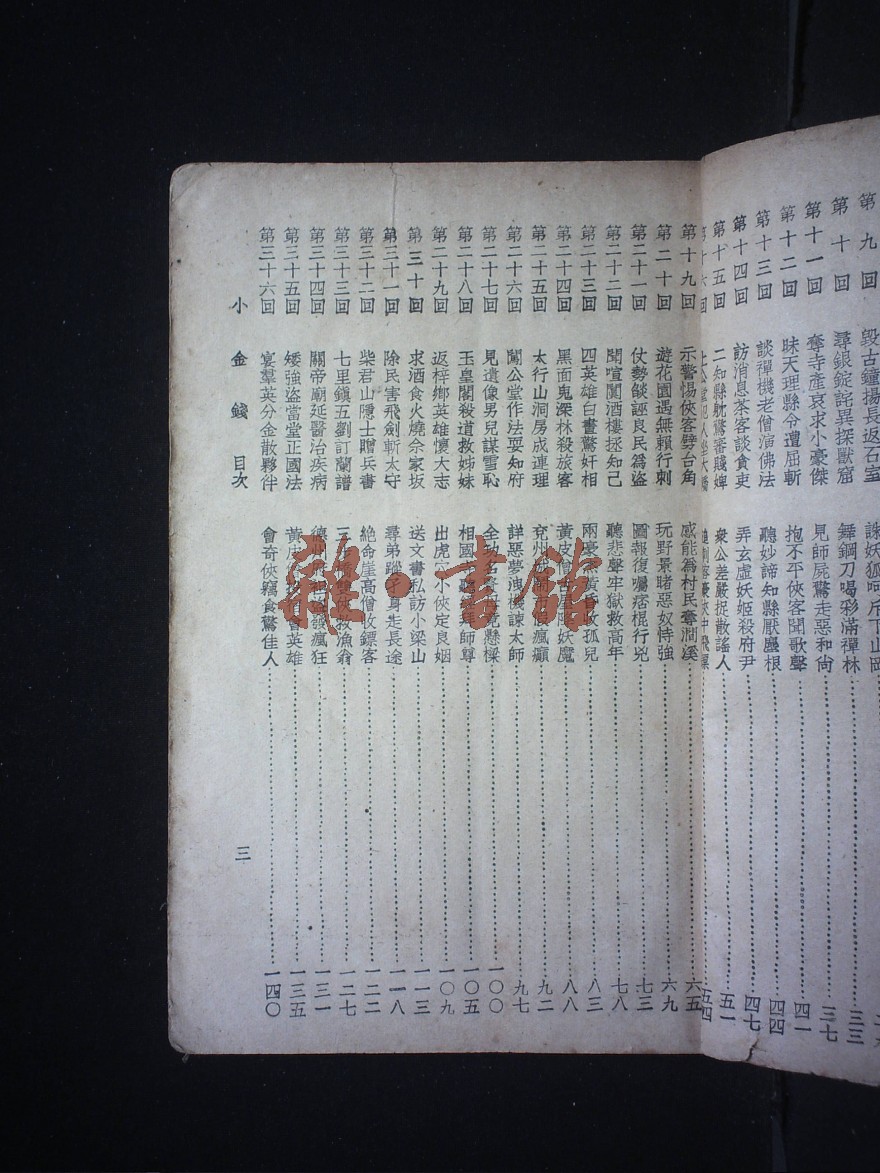 第九回 毀古鐘揚長返石室 誅妖狐呵斥下山岡
第十回 尋銀錠詫異探獸窟 舞鋼刀喝彩滿禪林 三三
第十一回 奪寺產哀求小豪傑 見師屍驚走惡和尙 三七
第十二回 昧天理縣令遭屈斬 抱不平俠客聞歌聲 四一
第十三回 談禪機老僧演佛法 聽妙諦知縣厭塵根 四四
第十四回 訪消息茶客談貪吏 弄玄虛妖姬殺府尹 四七
第十五回 二知縣躭驚審賤婢 衆公差嚴捉散謠人 五一
第十六回 五四
第十九回 示警惕俠客劈台角 感能爲村民奪澗溪 六五
第二十回 遊花園遇無賴行刺 玩野景睹惡奴恃強 六九
第二十一回 仗勢燄誣良民爲盜 圖報復囑痞棍行兇 七三
第二十二回 聞喧闐酒樓拯知己 聽悲聲牢獄救高年 七八
第二十三回 四英雄白晝驚奸相 兩豪 黃昏收孤兒 八三
第二十四回 黑面鬼深林殺旅客 黃皮僧古 妖魔 八八
第二十五回 太行山洞房成連理 兗州 假瘋癲 九二
第二十六回 鬧公堂作法耍知府 詳惡夢洩機諫太師 九七
第二十七回 見遺像男兒謀雪恥 全 懸樑 一〇〇
第二十八回 玉皇閣殺道救姊妹 相國 拜師尊 一〇五
第二十九回 返梓鄉英雄懷大志 出虎穴小俠定良姻 一〇九
第三十回 求酒食火燒佘家坂 送文書私訪小梁山 一一三
第三十一回 除民害飛劍斬太守 尋弟蹤孑身走長途 一一八
第三十二回 柴君山隱士贈兵書 絕命崖高僧收鏢客 一二二
第三十三回 七里鎭五劉訂蘭譜 三 雙俠救漁翁 一二七
第三十四回 關帝廟延醫治疾病 德州 發瘋狂 一三一
第三十五回 矮強盜當堂正國法 黃皮 會英雄 一三五
第三十六回 宴羣英分金散夥伴 會奇俠竊食驚佳人 一四〇
小金錢 目次 三
雜·書館